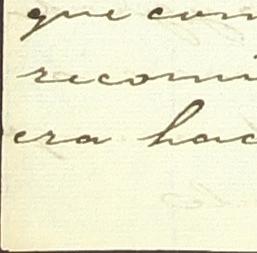 que com
recomi
era hac